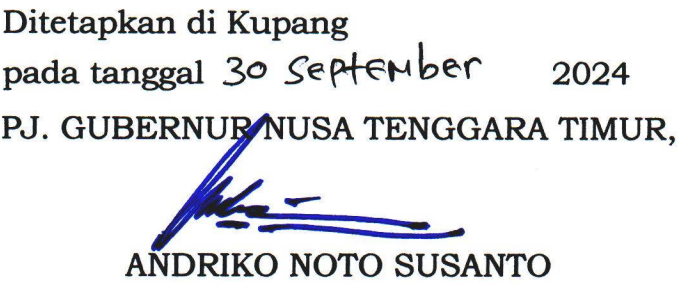 Ditetapkan di Kupang
pada tanggal 30 September 2024
PJ. GUBERNUR NUSA TENGGARA TIMUR,
ANDRIKO NOTO SUSANTO